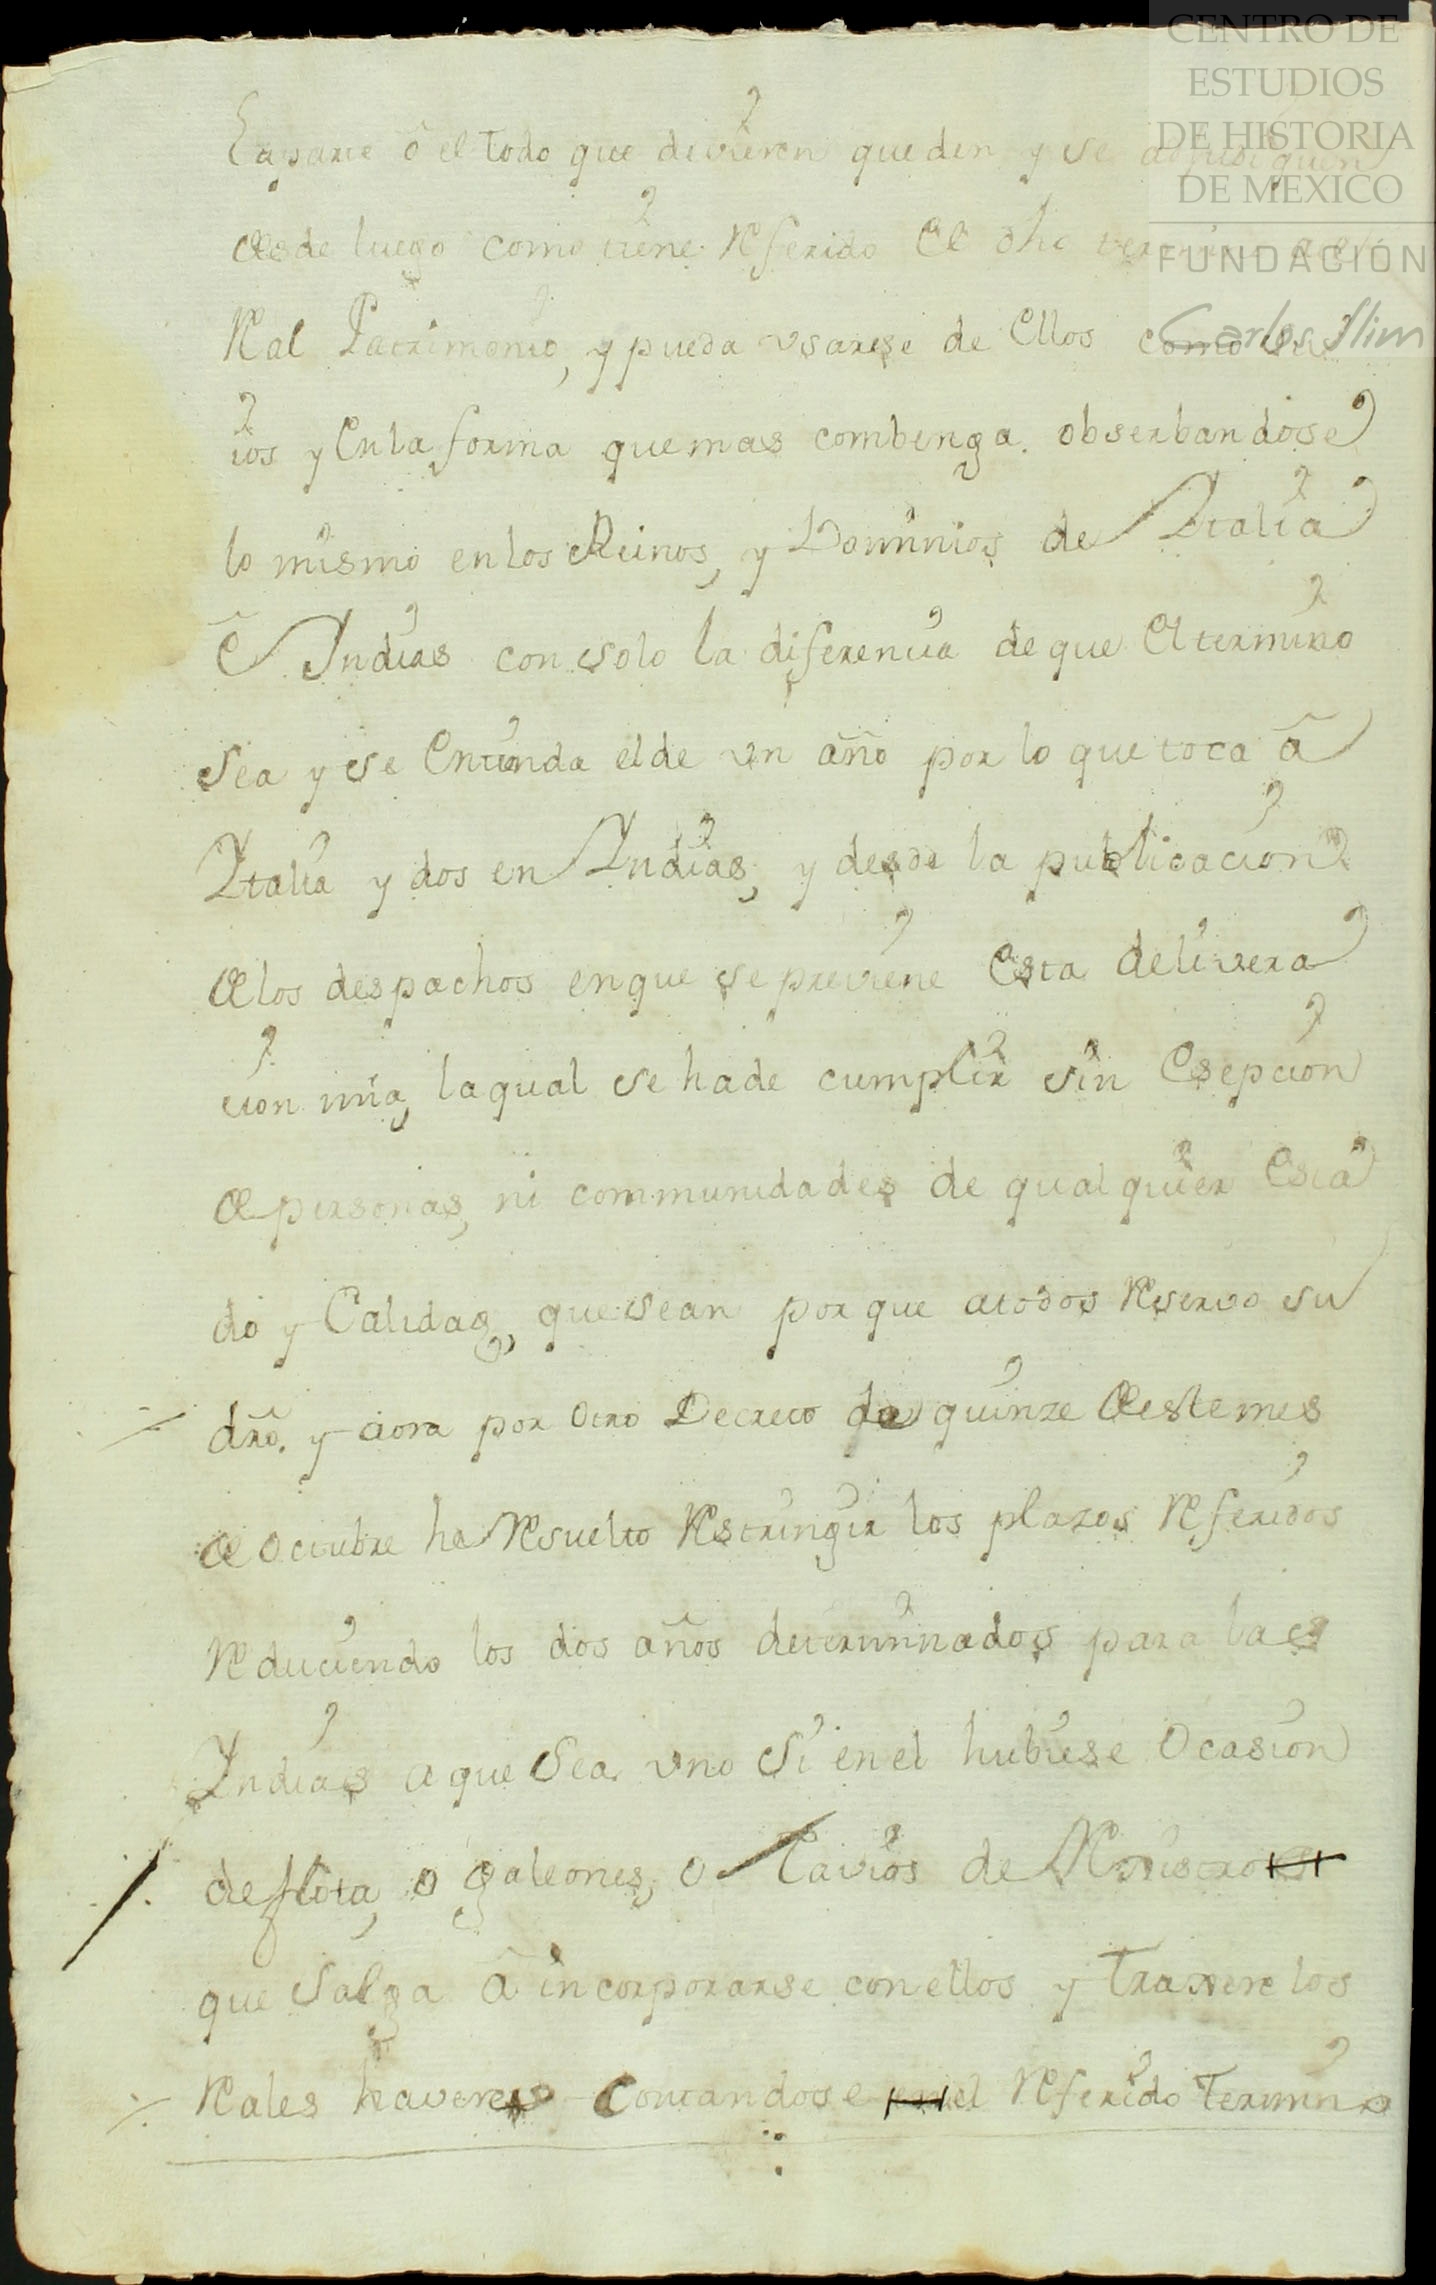 CENTRO DE
ESTUDIOS
DE HISTORIA
DE MEXICO
FUNDACIÓN
Carlos Slim
la parte ô el todo que devieren queden y se adjudiquen
desde luego como tiene Referido el dho termino
Real Patrimonio, y pueda vsarese de Ellos como
tos y En la forma que mas combenga. obserbandose
lo mismo en los Reinos, y Dominios de Italia
ê Indias con solo la diferencia de que El termino
sea y se Entienda el de vn año por lo que toca â
Italia y dos en Indias, y desde la publicacion
de los despachos en que se previene Esta delivera
cion mia, la qual se ha de cumplir sin Esepcion
de personas, ni communidades de qual quier Esta
do y Calidad, que sean por que a todos Reservo su
dro. y aora por otro Decreto de quinze de este mes
de Octubre he Resuelto Restringir los plazos Referidos
Reduciendo los dos años determinados para las
Indias a que Sea vno Si en el hubiese Ocasion
de flota, o galeones, o Navios de Rexistro
que salga â incorporarse con ellos y Traxere los
Rales haveres Contandose el Referido Termino